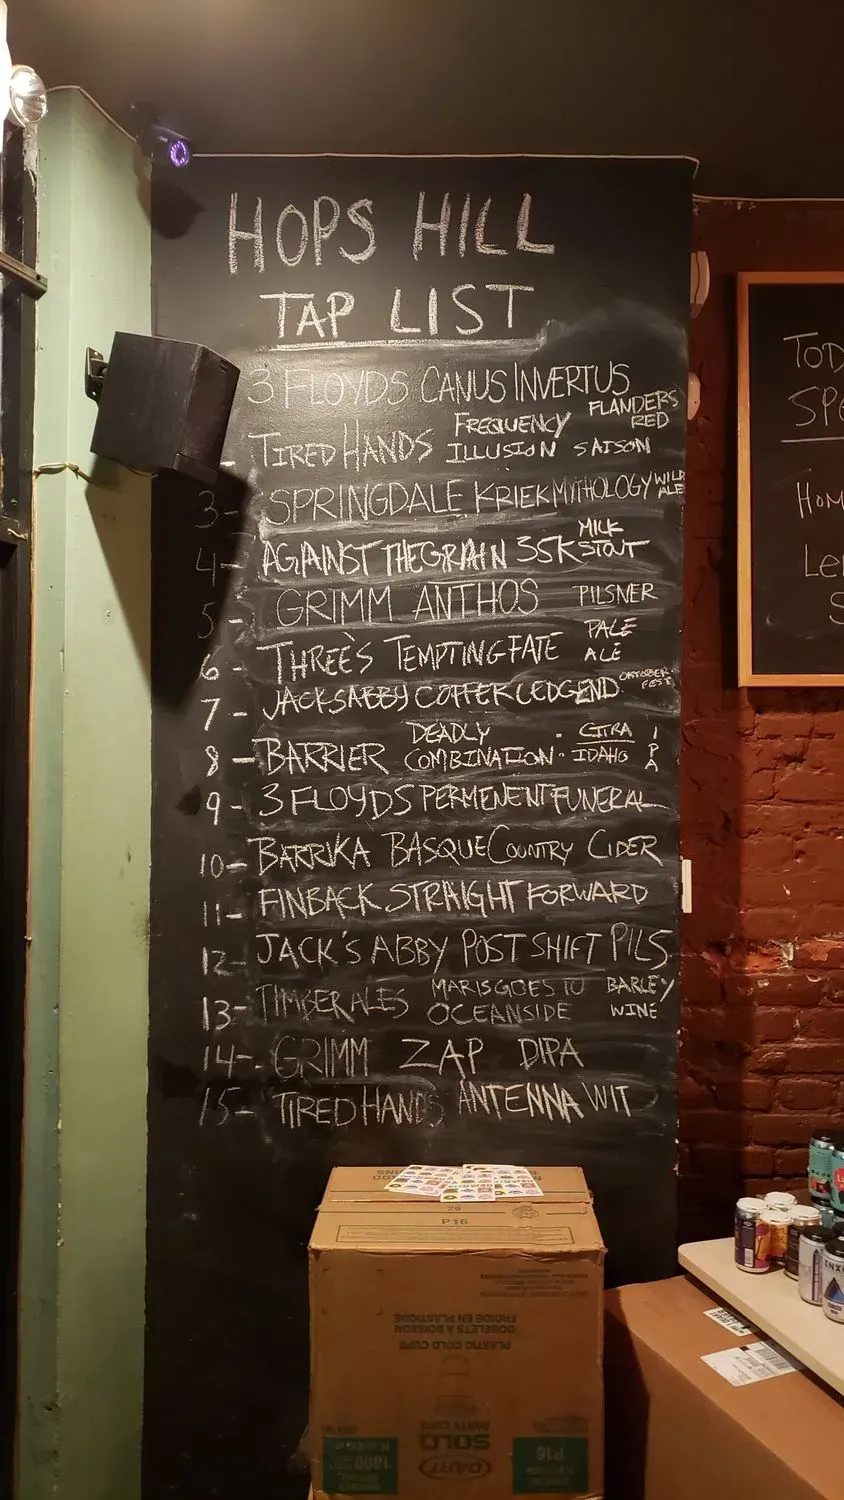 HOPS HILL
TAP LIST
3 FLOYDS CANUS INVERTUS FLANDERS RED
- TIRED HANDS FREQUENCY ILLUSION SAISON
3- SPRINGDALE KRIEK MYTHOLOGY WILD ALE
4- AGAINST THE GRAIN 35K MILK STOUT
5- GRIMM ANTHOS PILSNER
6- THREE'S TEMPTING FATE PALE ALE
7- JACKSABBY COPPER LEDGEND OKTOBER FEST
8- BARRIER DEADLY COMBINATION: CITRA IDAHO IPA
9- 3 FLOYDS PERMENENT FUNERAL
10- BARRIKA BASQUE COUNTRY CIDER
11- FINBACK STRAIGHT FORWARD
12- JACK'S ABBY POST SHIFT PILS
13- TIMBER ALES MARIS GOES TO OCEANSIDE BARLEY WINE
14- GRIMM ZAP DIPA
15- TIRED HANDS ANTENNA WIT
TOD
SPE
HOM
LE
S
26
P16
PLASTIC COLD CUPS
GOBELETS À BOISSON
FROIDE EN PLASTIQUE
SOLO
PARTY CUPS
DART
1000
P16